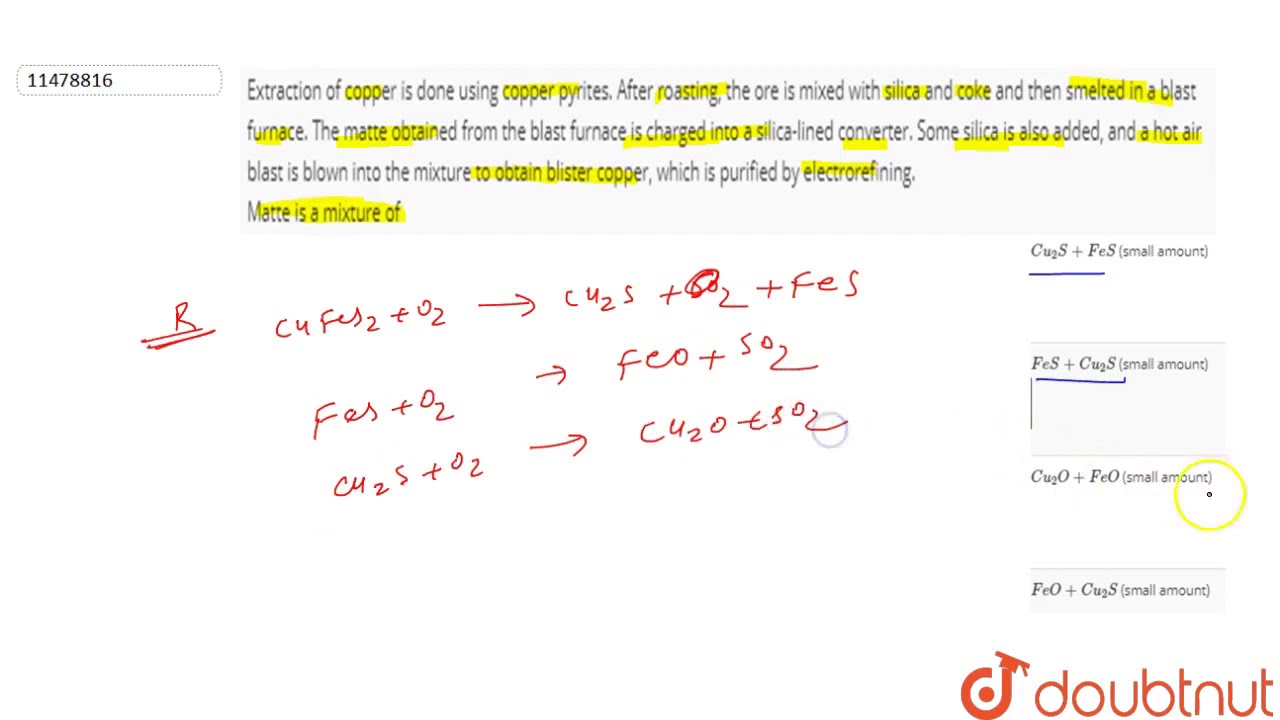 11478816
Extraction of copper is done using copper pyrites. After roasting, the ore is mixed with silica and coke and then smelted in a blast
furnace. The matte obtained from the blast furnace is charged into a silica-lined converter. Some silica is also added, and a hot air
blast is blown into the mixture to obtain blister copper, which is purified by electrorefining.
Matte is a mixture of
Cu₂S + FeS (small amount)
R
CuFeS₂ + O₂ → Cu₂S + SO₂ + FeS
FeS + Cu₂S (small amount)
FeS + O₂ → FeO + SO₂
Cu₂S + O₂ → Cu₂O + SO₂
Cu₂O + FeO (small amount)
FeO + Cu₂S (small amount)
doubtnut